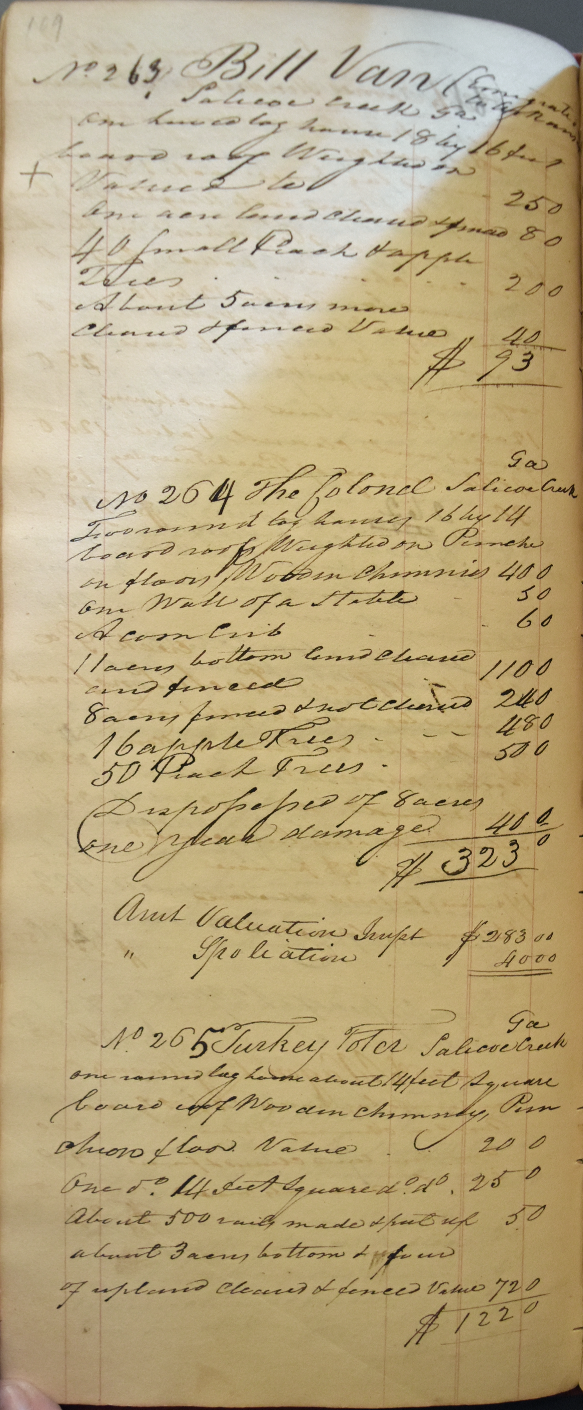 169
No 263 Bill Van (Emigrated to Arkansas
Salicoe Creek Ga
one hewed log house 18 by 16 feet
board roof Weighted on
+ Valued to 25 0
One acre land cleared & fenced 8 0
40 small Peach & apple
Trees 20 0
About 5 acres more
cleared & fenced Value 40
$ 93
Ga
No 264 The Colonel Salicoe Creek
Two round log houses 16 by 14
board roofs Weighted on Punche
on floors Wooden Chimnies 40 0
one Wall of a Stable 5 0
A corn Crib 6 0
11 acres bottom land cleared
and fenced 110 0
8 acres fenced & not cleared 24 0
16 apple Trees 48 0
50 Peach Trees 50 0
Dispossessed of 8 acres
one year damage 40 0
$ 323 0
Amt Valuation Impt $ 283 00
" Spoliation 40 00
Ga
No 265 Turkey Toter Salicoe Creek
one round log house about 14 feet square
board roof Wooden chimney, Pun
cheon floor Value 20 0
One do. 14 feet square do. do. 25 0
About 500 rails made & put up 5 0
about 3 acres bottom & four
of upland cleared & fenced Value 72 0
$ 122 0